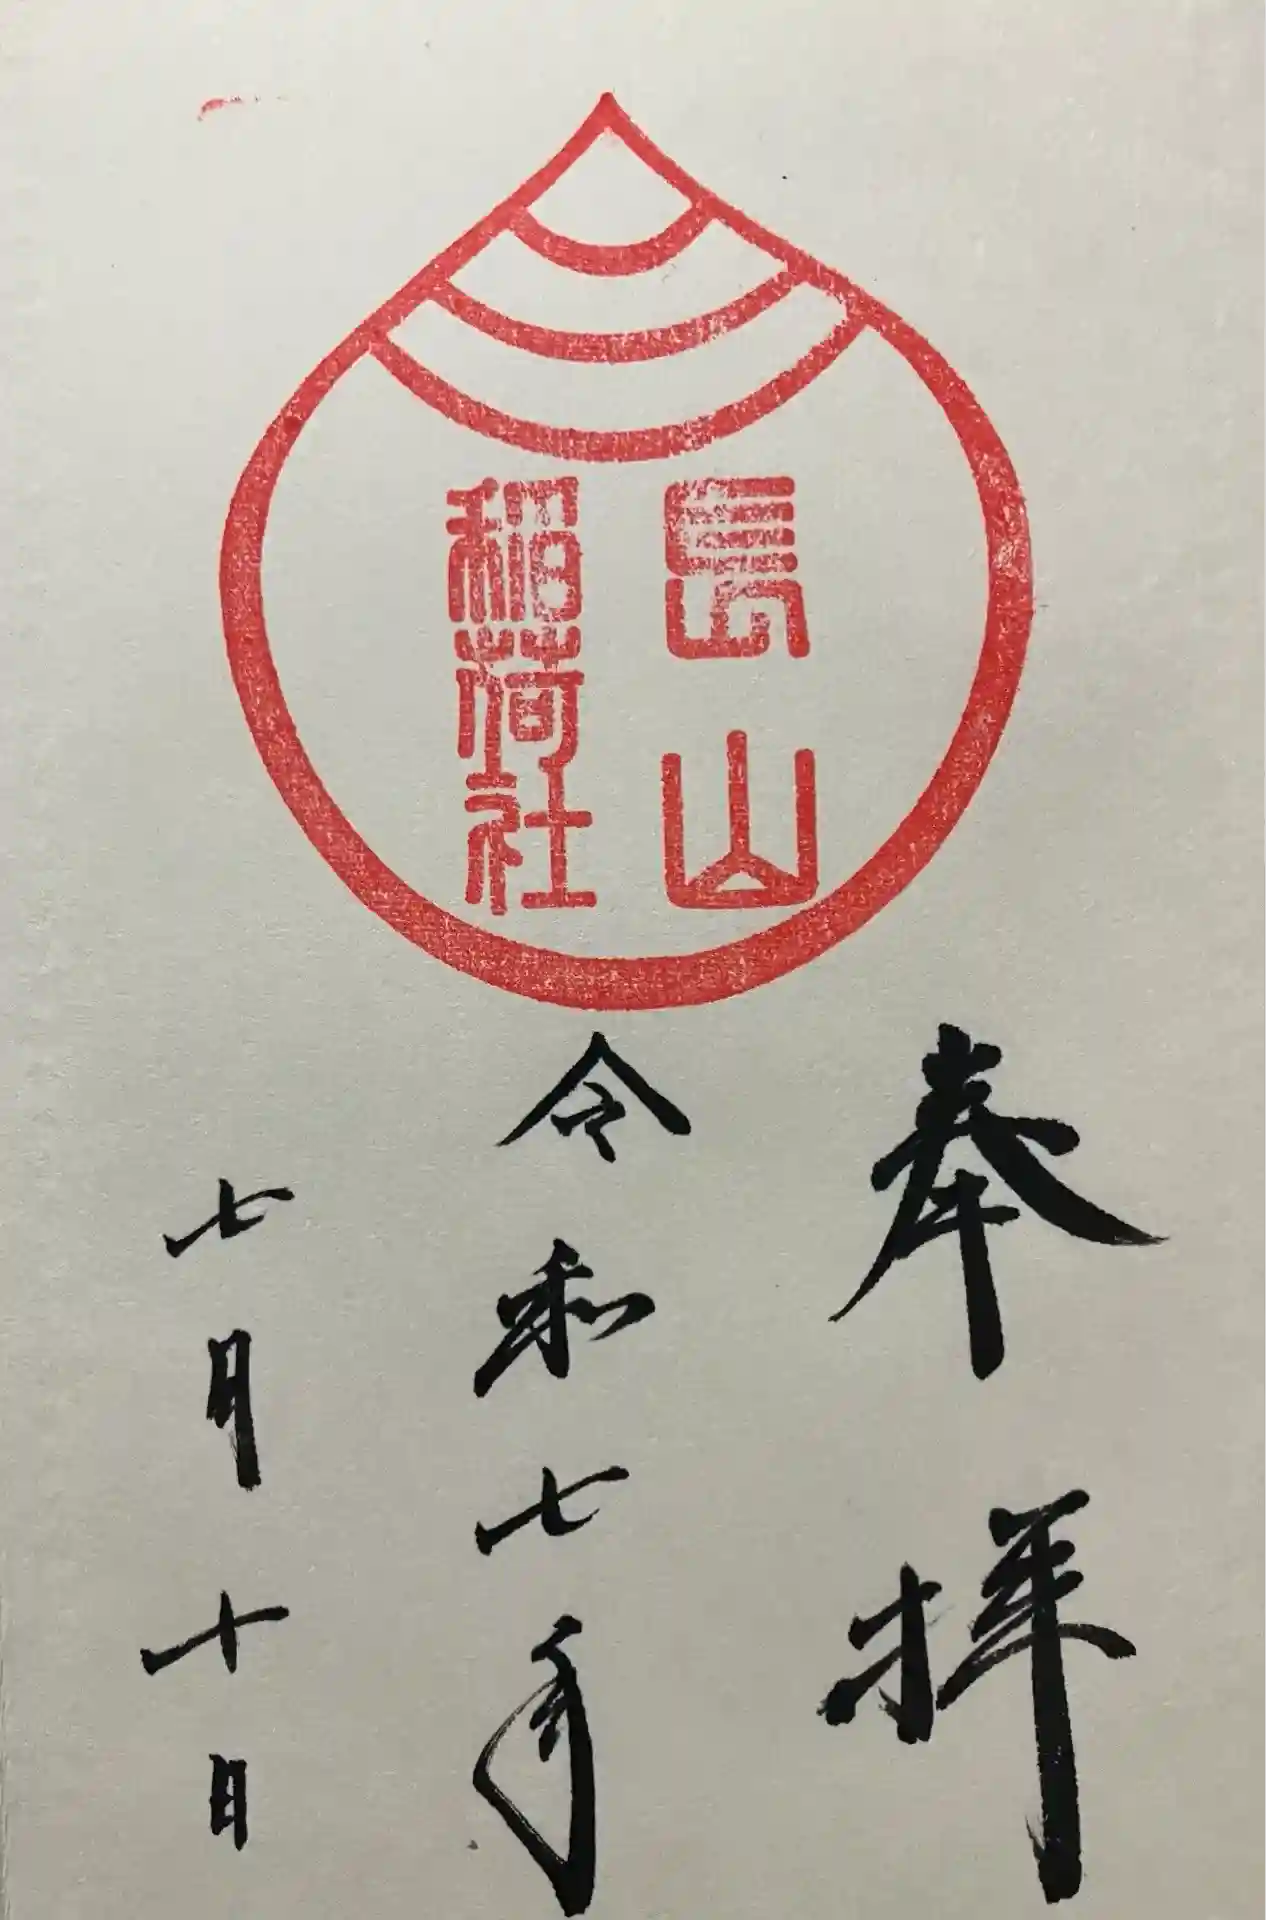 島山
稲荷社
奉拝
令和七年
七月十日